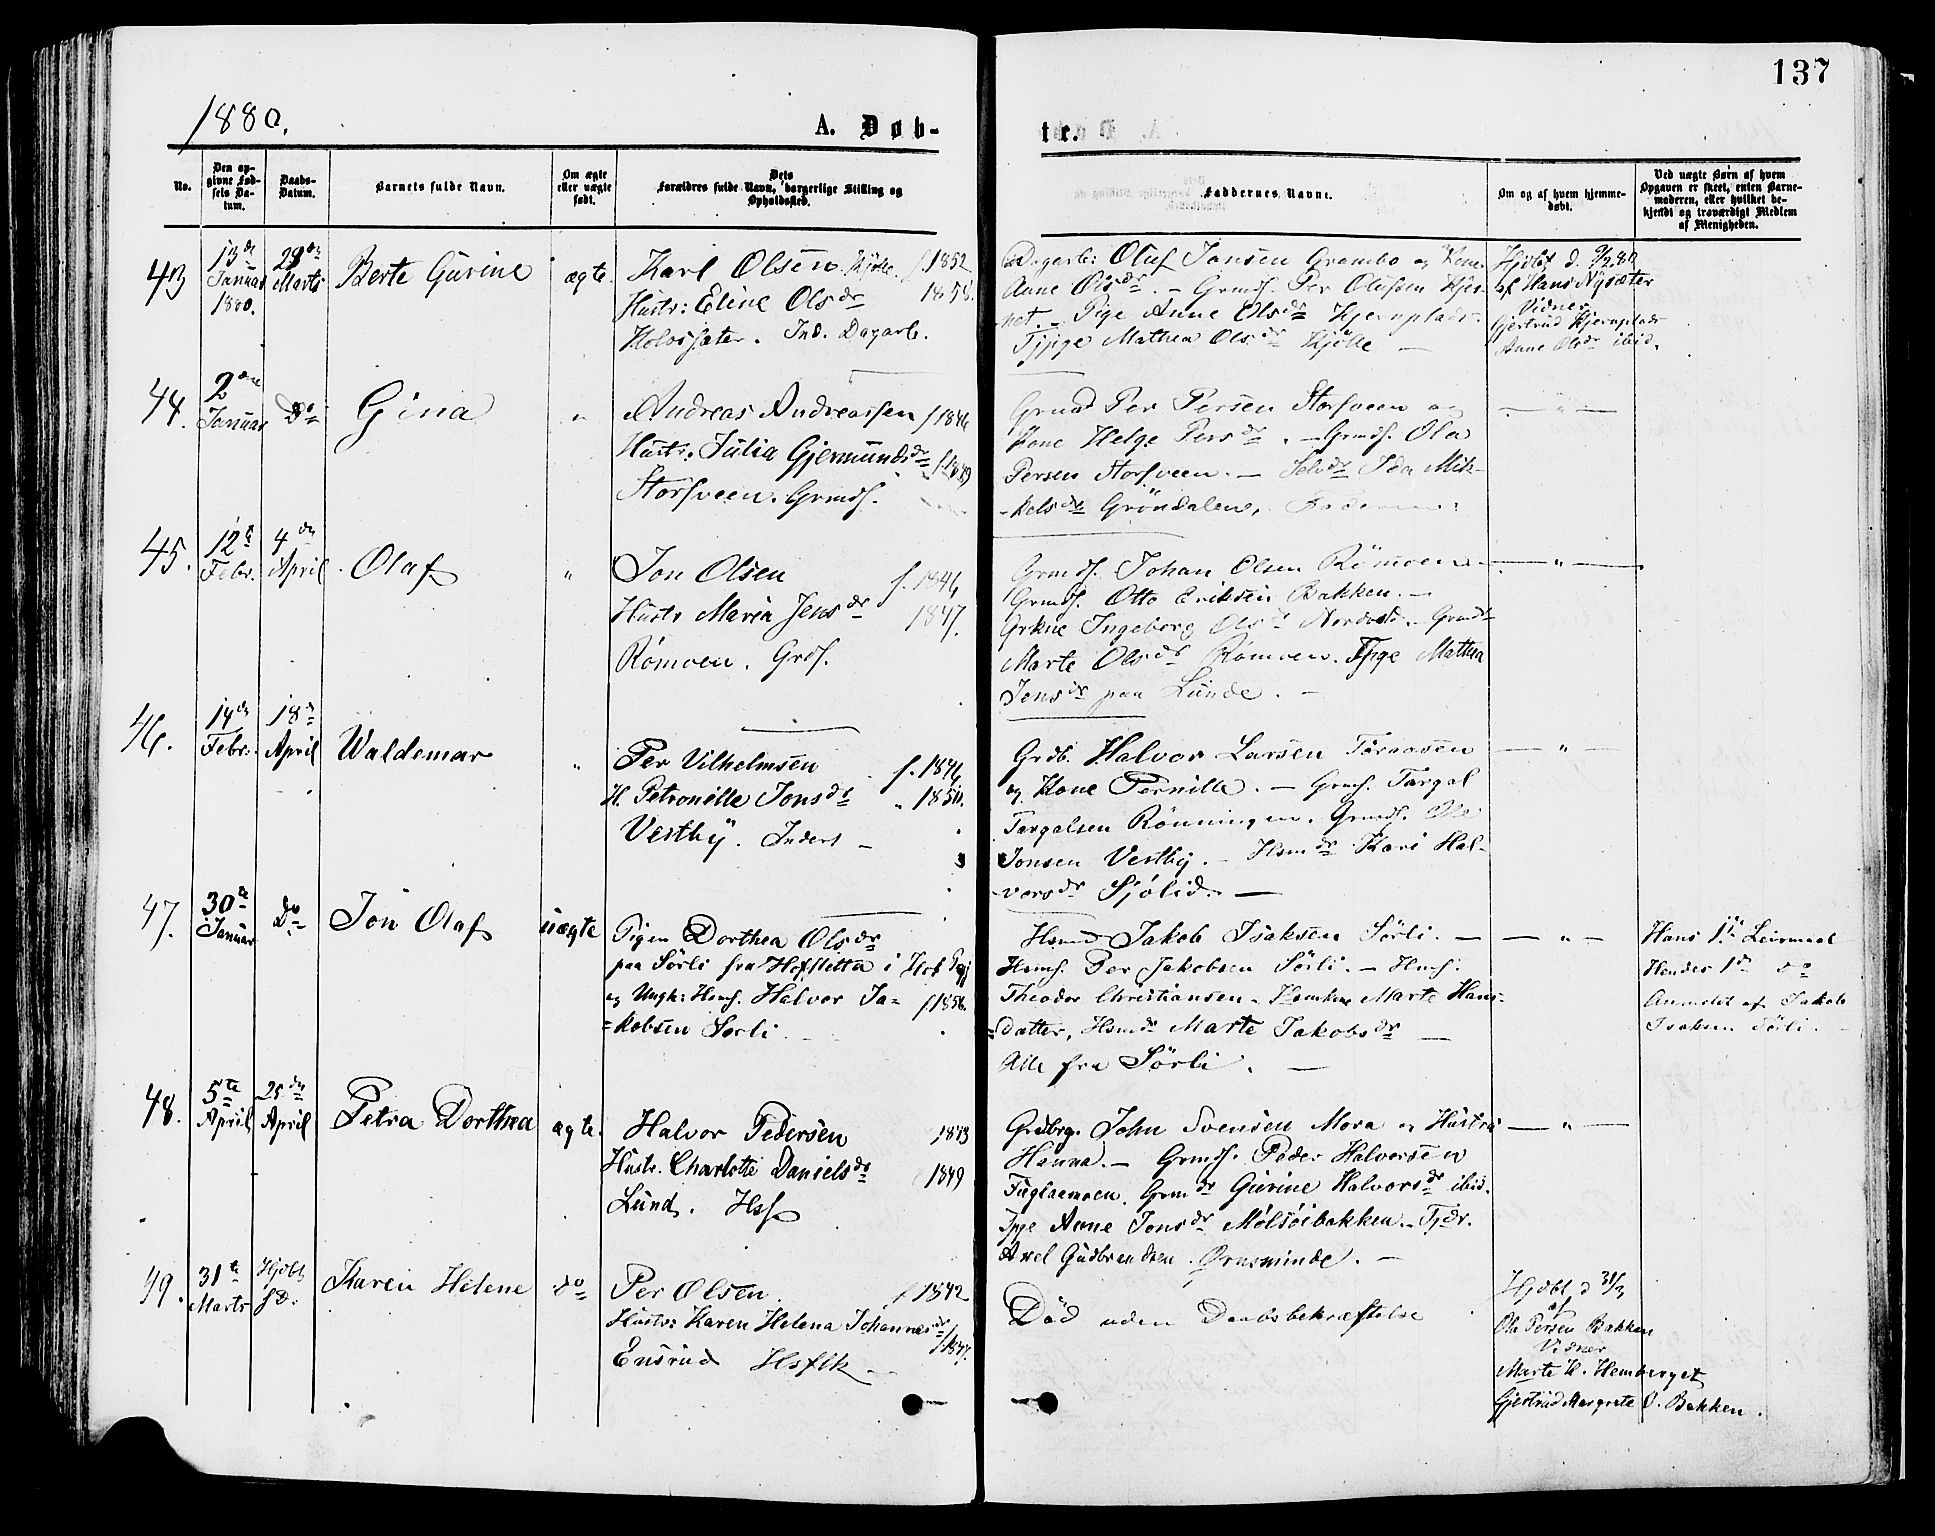 137
1880.
A. Døb-
te.
No.
Den opgivne Fødsels Datum.
Daabs-Datum.
Barnets fulde Navn.
Om ægte eller uægte født.
Dets Forældres fulde Navn, borgerlige Stilling og Opholdssted.
Faddernes Navne.
Om og af hvem hjemmedøbt.
Ved uægte Børn af hvem Opgaven er skeet, enten Barnemoderen, eller hvilket bekjendt og troværdigt Medlem af Menigheden.
43
13de Januar 1880.
28de Marts
Berte Gurine
ægte
Karl Olsen Kjølle f. 1852
Hustr: Eline Olsdr 1858.
Ind. Dagarb.
Dagarb: Oluf Jansen Grambo og Kone
Anne Olsdr. – Grmds. Per Olufsen Kjer-
net. – Pige Anne Olsdr Kjernplads.
Tjpige Mathea Olsdr Kjølle –
Hjdbt d. 9/2 80
af Hans Nysæter
Vidner
Gjertrud Kjernplads
Anne Olsdr ibid.
44.
2den Januar
Do
Gina
"
Andreas Andreassen f 1846
Hustr. Julia Gjermundsdr f. 1849
Storsveen. Grmds.
Grmd Per Persen Storsveen og
Kone Helge Persdr. – Grmds. Ola
Persen Storsveen. – Selvdr Ida Mik-
kelsdr Gröndalen,
— " —
45.
12te Febr.
4de April
Olaf
"
Jon Olsen f. 1846
Hustr Maria Jensdr 1847.
Rømoen. Grds.
Grmds. Johan Olsen Rømoen
Grmds. Otto Eriksen Bakken. –
Grkne Ingeborg Olsdr – Grmdr
Marte Olsdr Rømoen. Tjpige Mathea
Jonsdr paa Lunde. –
— " —
46.
14de Febr.
18de April
Waldemar
"
Per Vilhelmsen f. 1846
H. Petronille Jonsdr "
Vestby. Inderst –
Grdb. Halvor Larsen
og Kone Pernille. – Grmds. Targal
Targalsen Rönningen. Grmds. Ole
Jonsen Vestby. – Hsmdr Kari Hal-
vorsdr Sjölid. –
— " —
47.
30te Januar
Do
Jon Olaf
uægte
Pigen Dorthea Olsdr
paa Sörli fra Hofsletta i Hof
og Ungk: Hsmds. Halvor Ja- f 1856.
=kobsen Sørli
Hsmd Jakob Isaksen Sörli. –
Hsmds. Per Jakobsen Sörli. – Hmds.
Theodor Christiansen – Hsmkne Marte Hans-
=datter, Hsmdr Marte Jakobsdr –
Alle fra Sörli. –
— " —
Hans 1ste Leiermaal
Hendes 1ste do
Anmeldt af Jakob
Isaksen Sörli. –
48.
5te April
25de April
Petra Dorthea
ægte.
Halvor Pedersen 1843
Hustr. Charlotte Danielsdr 1849
Lund. Hsf
Grdbrg. John Svensen Mora og Hustru
Hanna. – Grmds. Peder Halvorsen
Fuglaamoen. Grmdr Gurine Halvorsdr ibid.
Tpge Anne Jonsdr Mølsöibakken. – Tjdr.
Axel Gudbrandsen Ornsminde. –
— " —
49.
31te Marts
Hjdbt
Karen Helene
do
Per Olsen. f 1842
Hustr: Karen Helena Johannesdr f 1847.
Ensrud
Död uden Daabsbekræftelse
Hjdbt d 31/3
af
Ola Persen Bakken
Vidner
Marte H. Hemberget
Gjertrud Margrete O. Bakken.